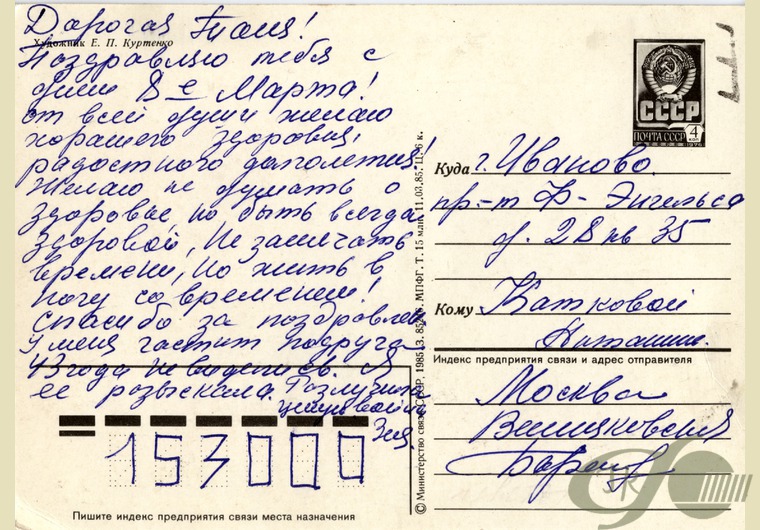 Дорогая Таня!
Художник Е. П. Куртенко
Поздравляю тебя с
днем 8е Марта!
от всей души желаю
хорошего здоровия,
радостного долголетия!
Желаю не думать о
здоровье, но быть всегда
здоровой, Не замечать
времени, но жить в
ногу со временем!
спасибо за поздравлен
У меня гостит подруга
43 года не виделись. Я
ее розыскала. Разлучила
война
Зея.
153000
Пишите индекс предприятия связи места назначения
© Министерство связи СССР, 1985. З. МПФГ. Т. 15 млн. 11.03.85. Ц. 6 к.
СССР
ПОЧТА СССР
4 КОП
1976
Куда г. Иваново
пр-т Ф-Энгельса
д. 28 кв 35
Кому Катковой
Наташи.
Индекс предприятия связи и адрес отправителя
Москва